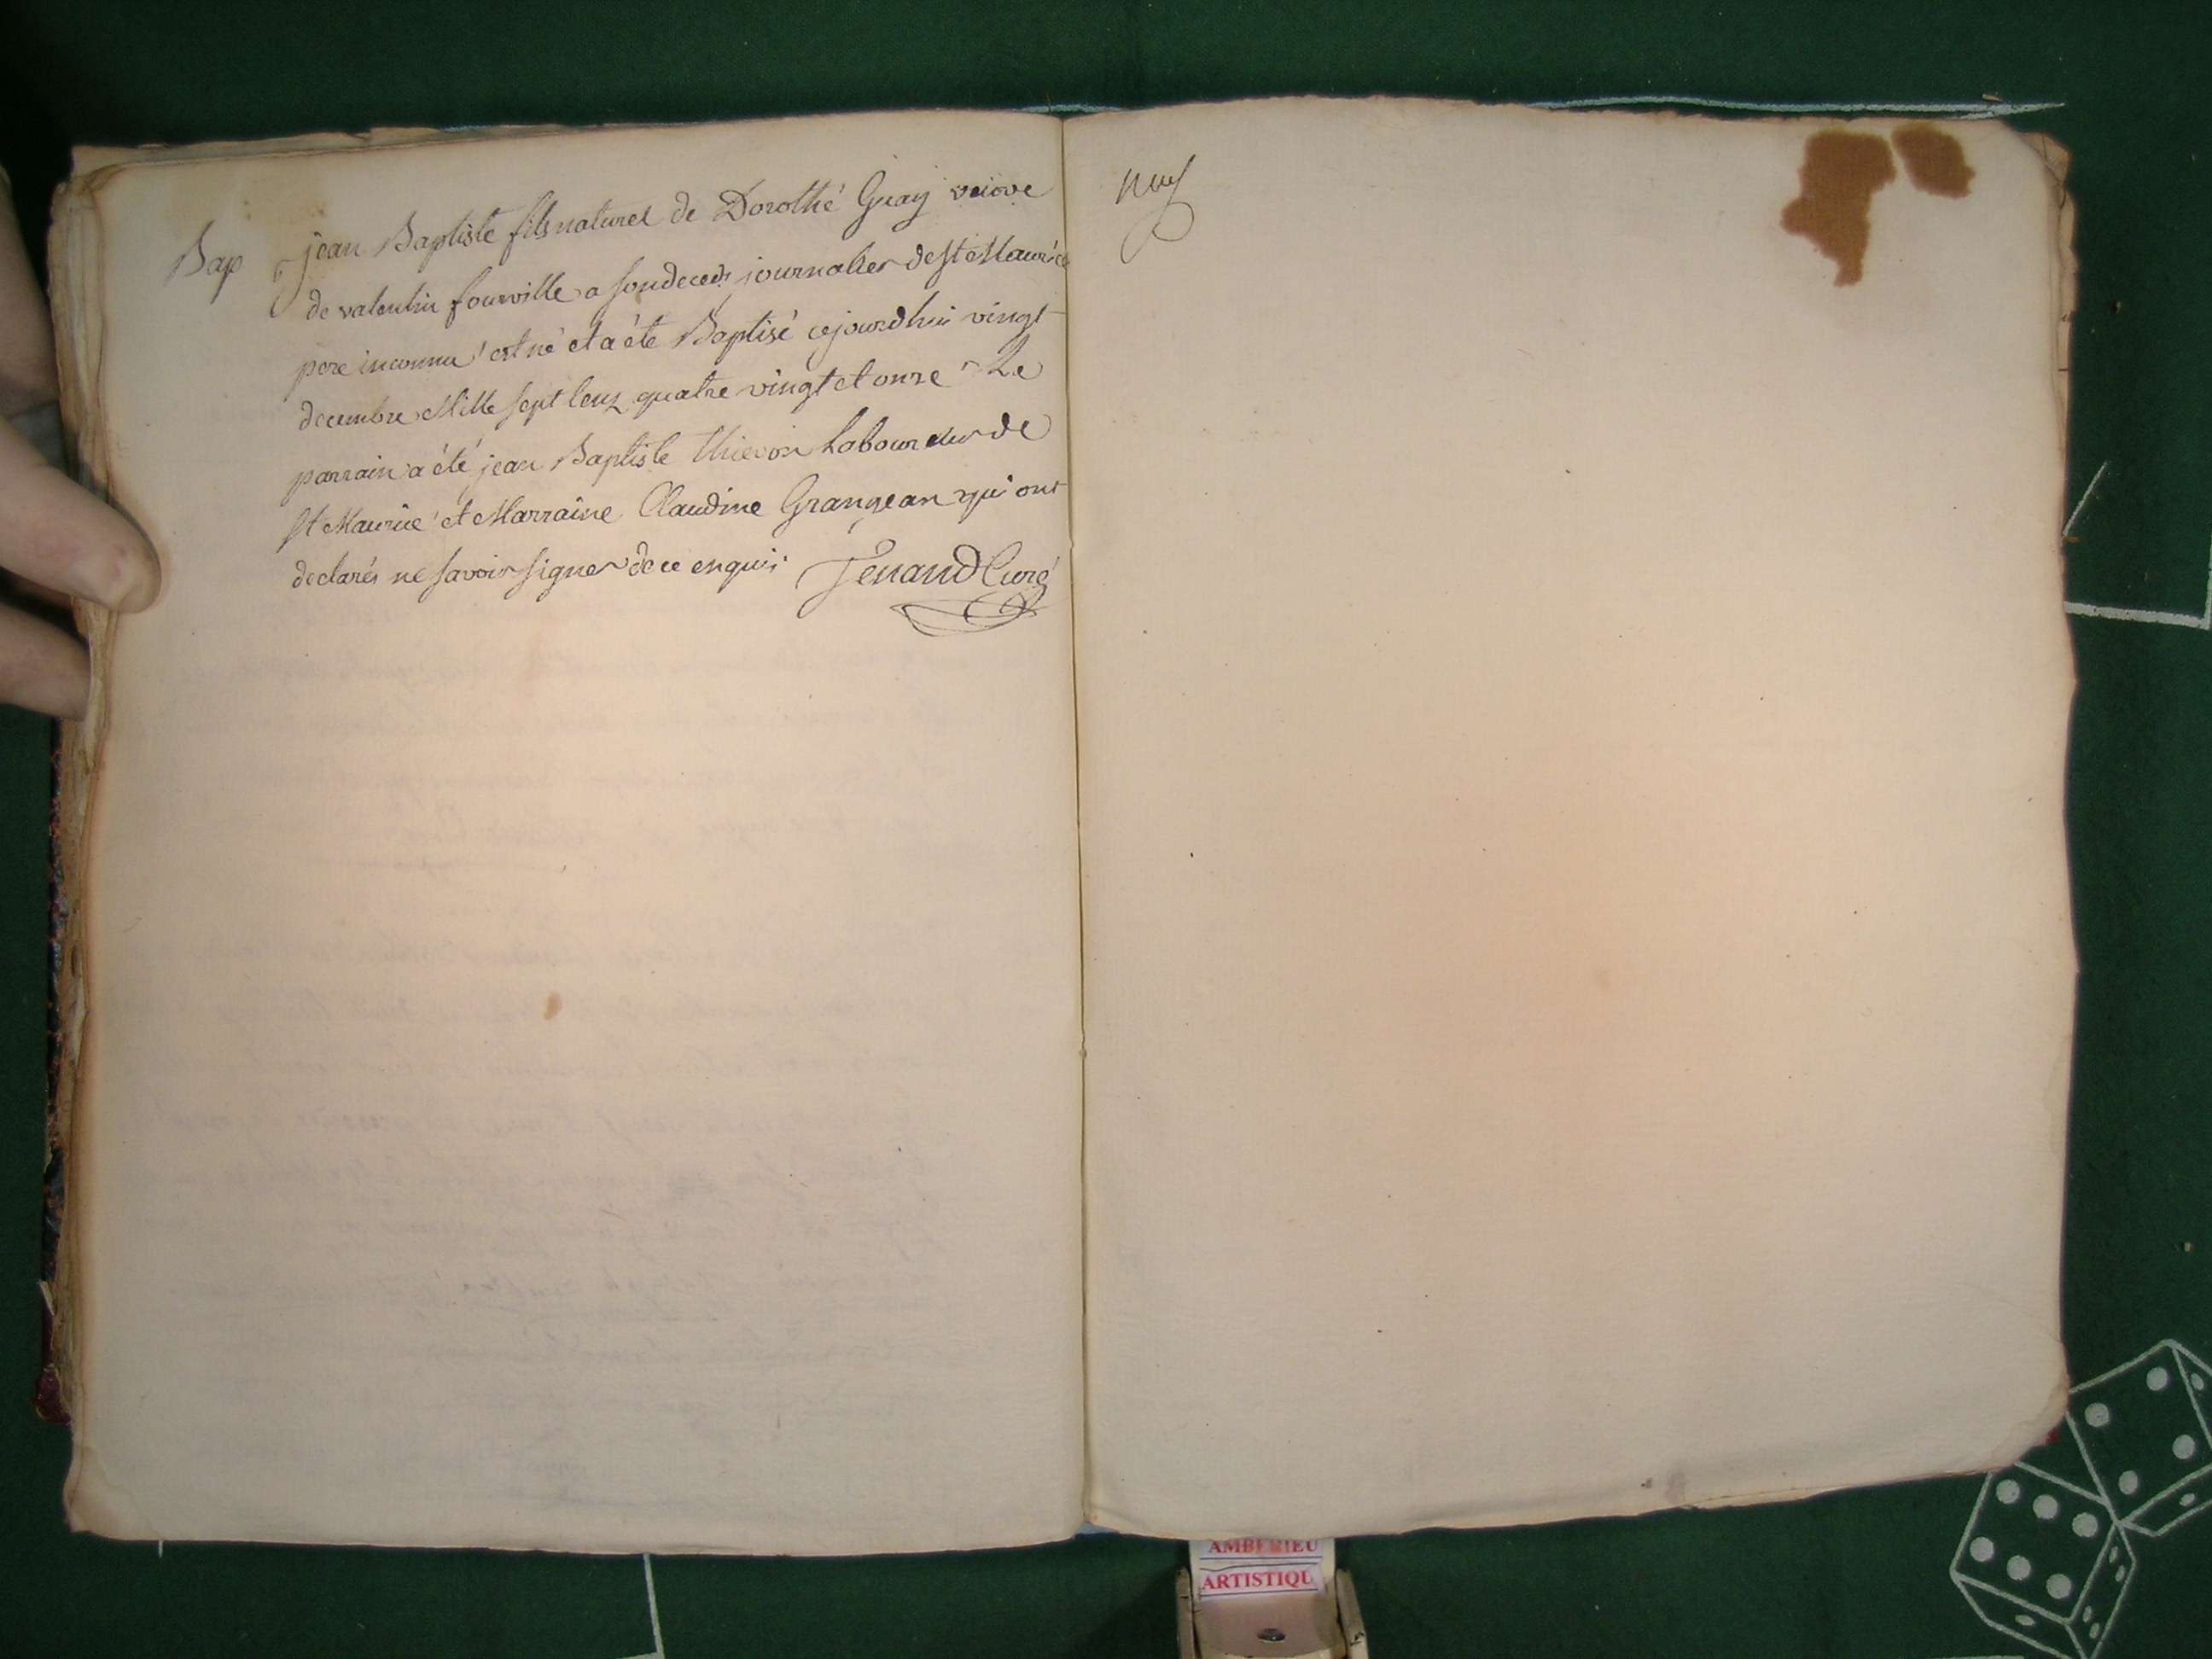 Bap
jean Baptiste fils naturel de Dorothé Guay veuve
de valentin fourville a son deced journalier de St Maurice
pere inconnu est né et a éte Baptisé cejourdhui vingt
decembre Mille sept Cenz quatre vingt et onze Le
parrain a été jean Baptiste thievon Laboureur de
St Maurice et Marraine Claudine Grangean qui ont
declarés ne savoir signer de ce enquis Tenand Curé
AMBERIEU
ARTISTIQU